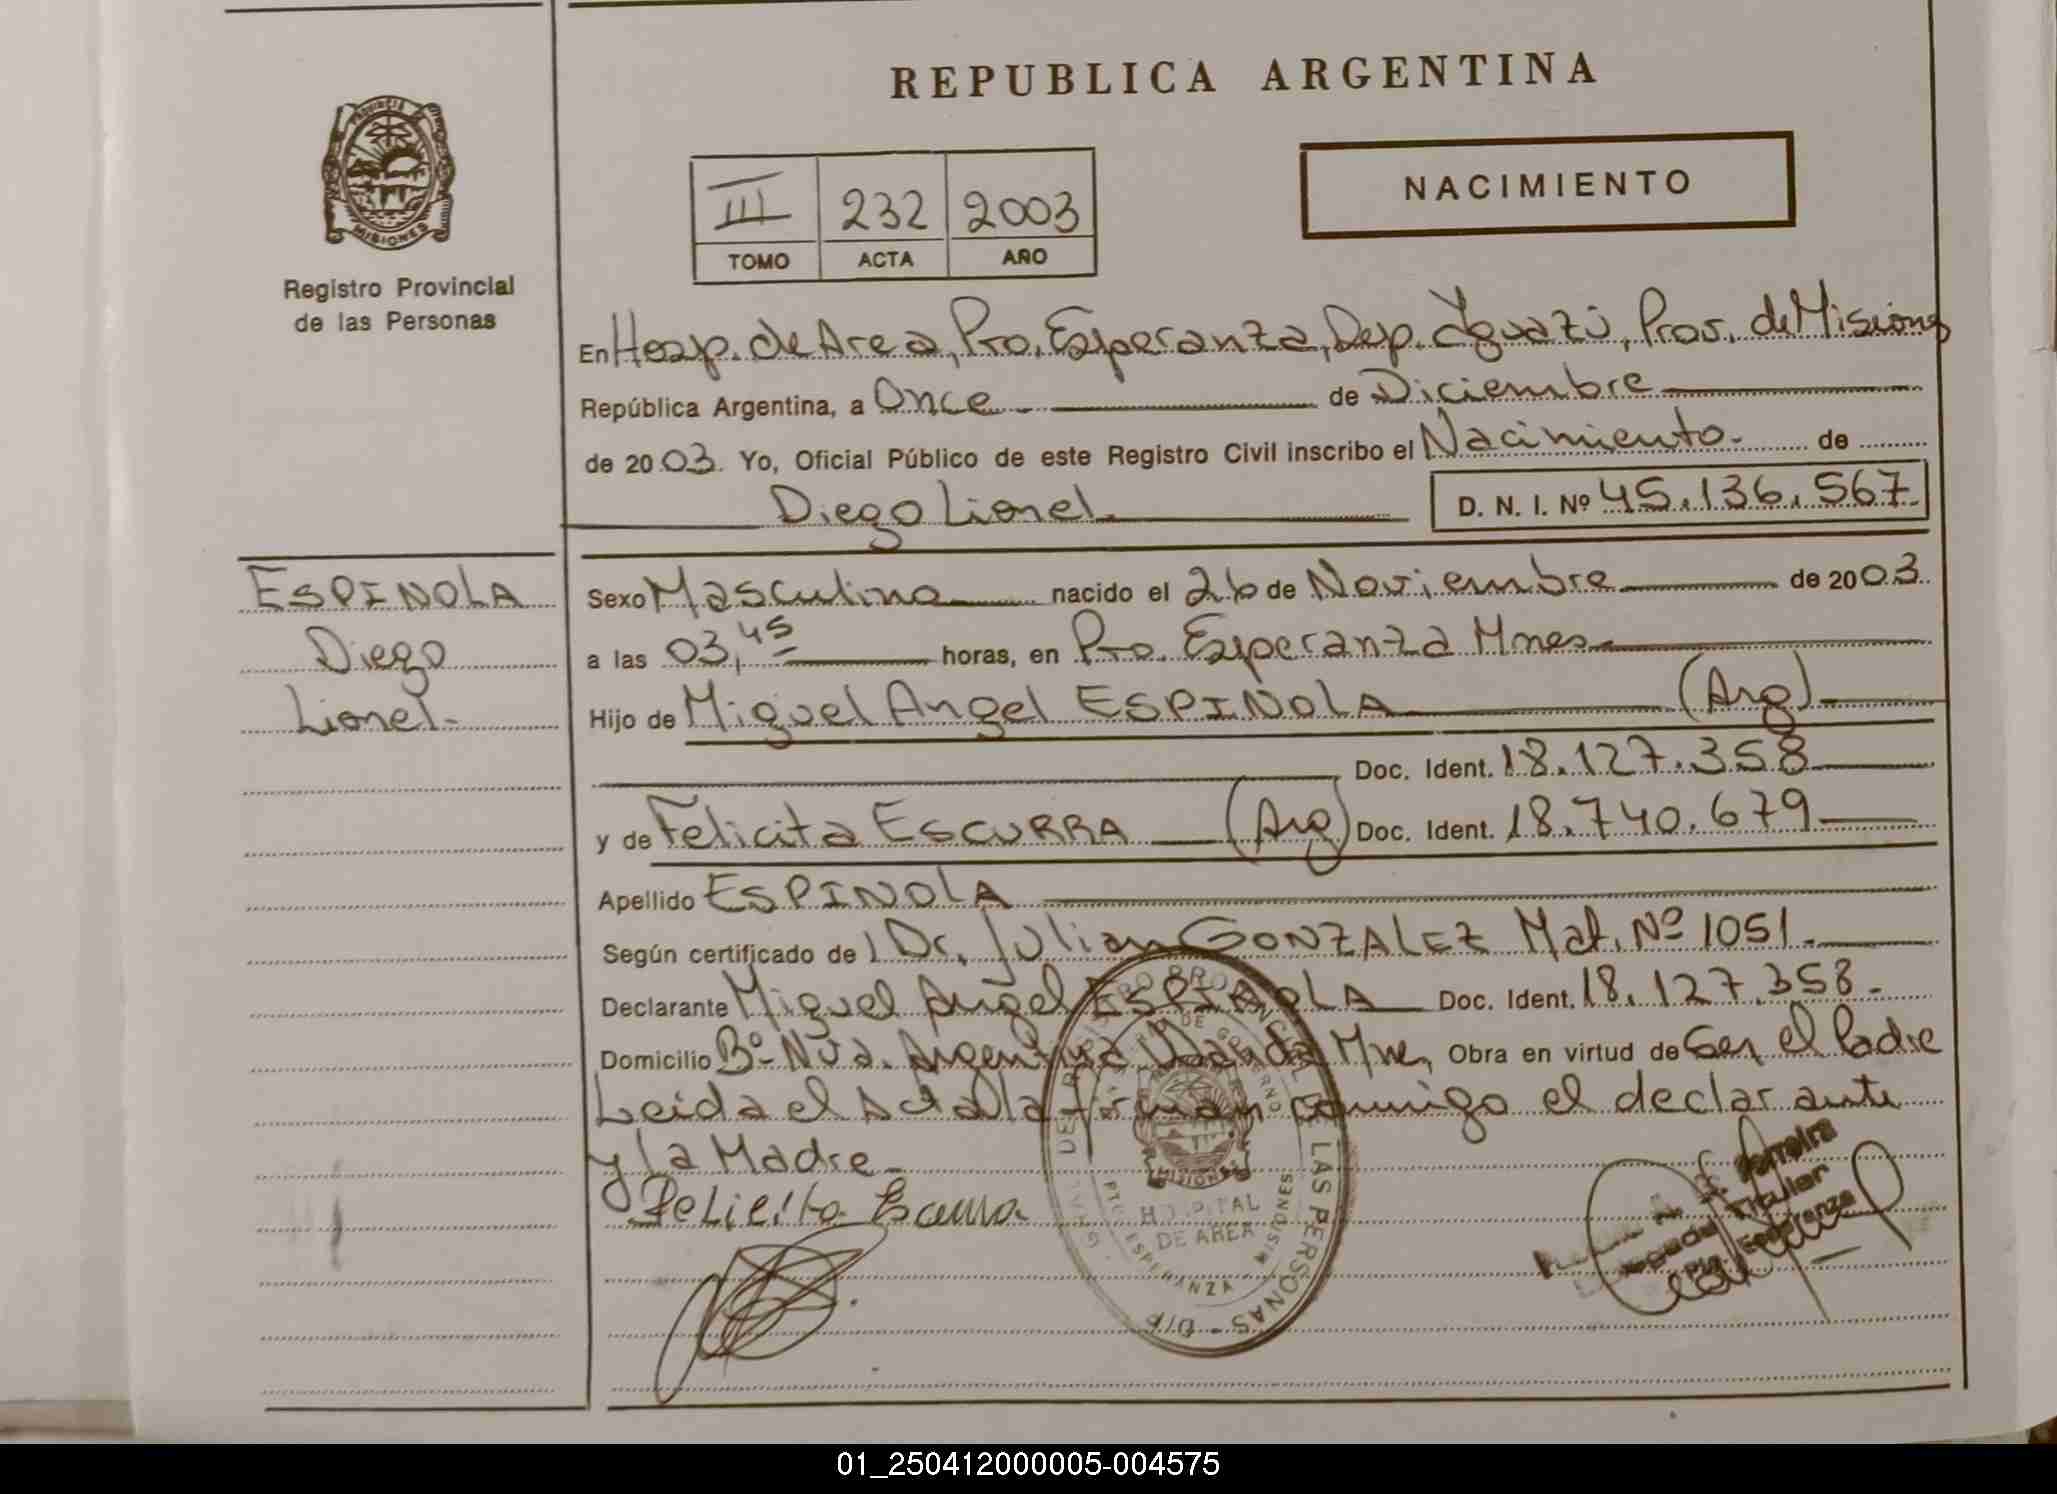 REPUBLICA ARGENTINA
PROVINCIA
MISIONES
Registro Provincial
de las Personas
III 232 2003
TOMO ACTA AÑO
NACIMIENTO
En Hosp. de Area, Pto. Esperanza, Dep. Yguazú, Prov. de Misiones
República Argentina, a Once de Diciembre
de 2003. Yo, Oficial Público de este Registro Civil inscribo el Nacimiento. de
Diego Lionel. D. N. I. Nº 45.136.567.
ESPINOLA
Diego
Lionel.
Sexo Masculino nacido el 26 de Noviembre de 2003.
a las 03,45 horas, en Pto. Esperanza Mnes.
Hijo de Miguel Angel ESPINOLA (Arg).
Doc. Ident. 18.127.358
y de Felicita ESCURRA (Arg) Doc. Ident. 18.740.679
Apellido ESPINOLA
Según certificado de Dr. Julian GONZALEZ Mat. Nº 1051.
Declarante Miguel Angel ESPINOLA Doc. Ident. 18.127.358.
Domicilio Bº Nva. Argentina Wanda Mne, Obra en virtud de Ser el Padre
Leida el Acta la firman conmigo el declarante
y la Madre.
Felicita
REGISTRO PROVINCIAL DE LAS PERSONAS
DE GOBIERNO
MISIONES
HOSPITAL
DE AREA
PTO. ESPERANZA - MISIONES
Titular
Pto. Esperanza
01_250412000005-004575